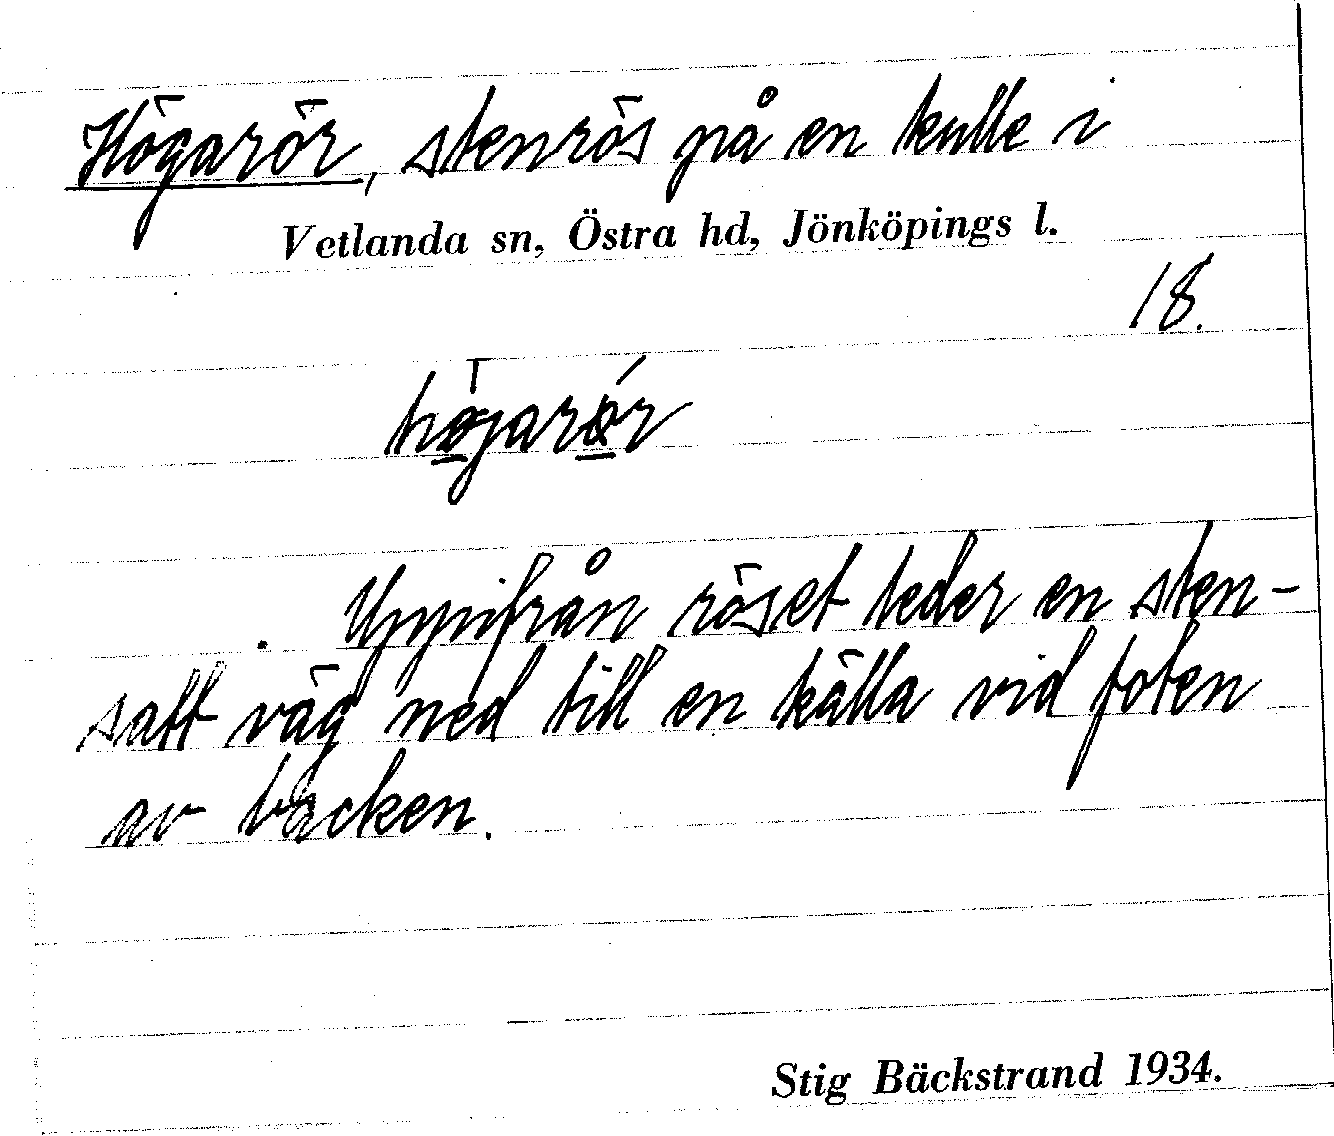 Högarör, stenrös på en kulle i
Vetlanda sn, Östra hd, Jönköpings l.
18.
högarör
Uppifrån röset leder en sten-
satt väg ned till en källa vid foten
av backen.
Stig Bäckstrand 1934.